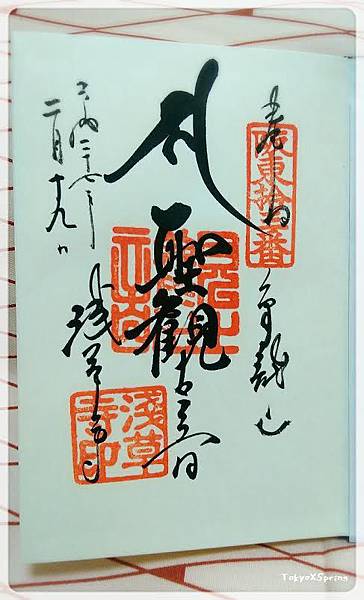 奉拝
坂東拾三番
金龍山
聖観世音
浅草寺
淺草寺印
平成二十七年
二月十九日
TokyoXSpring